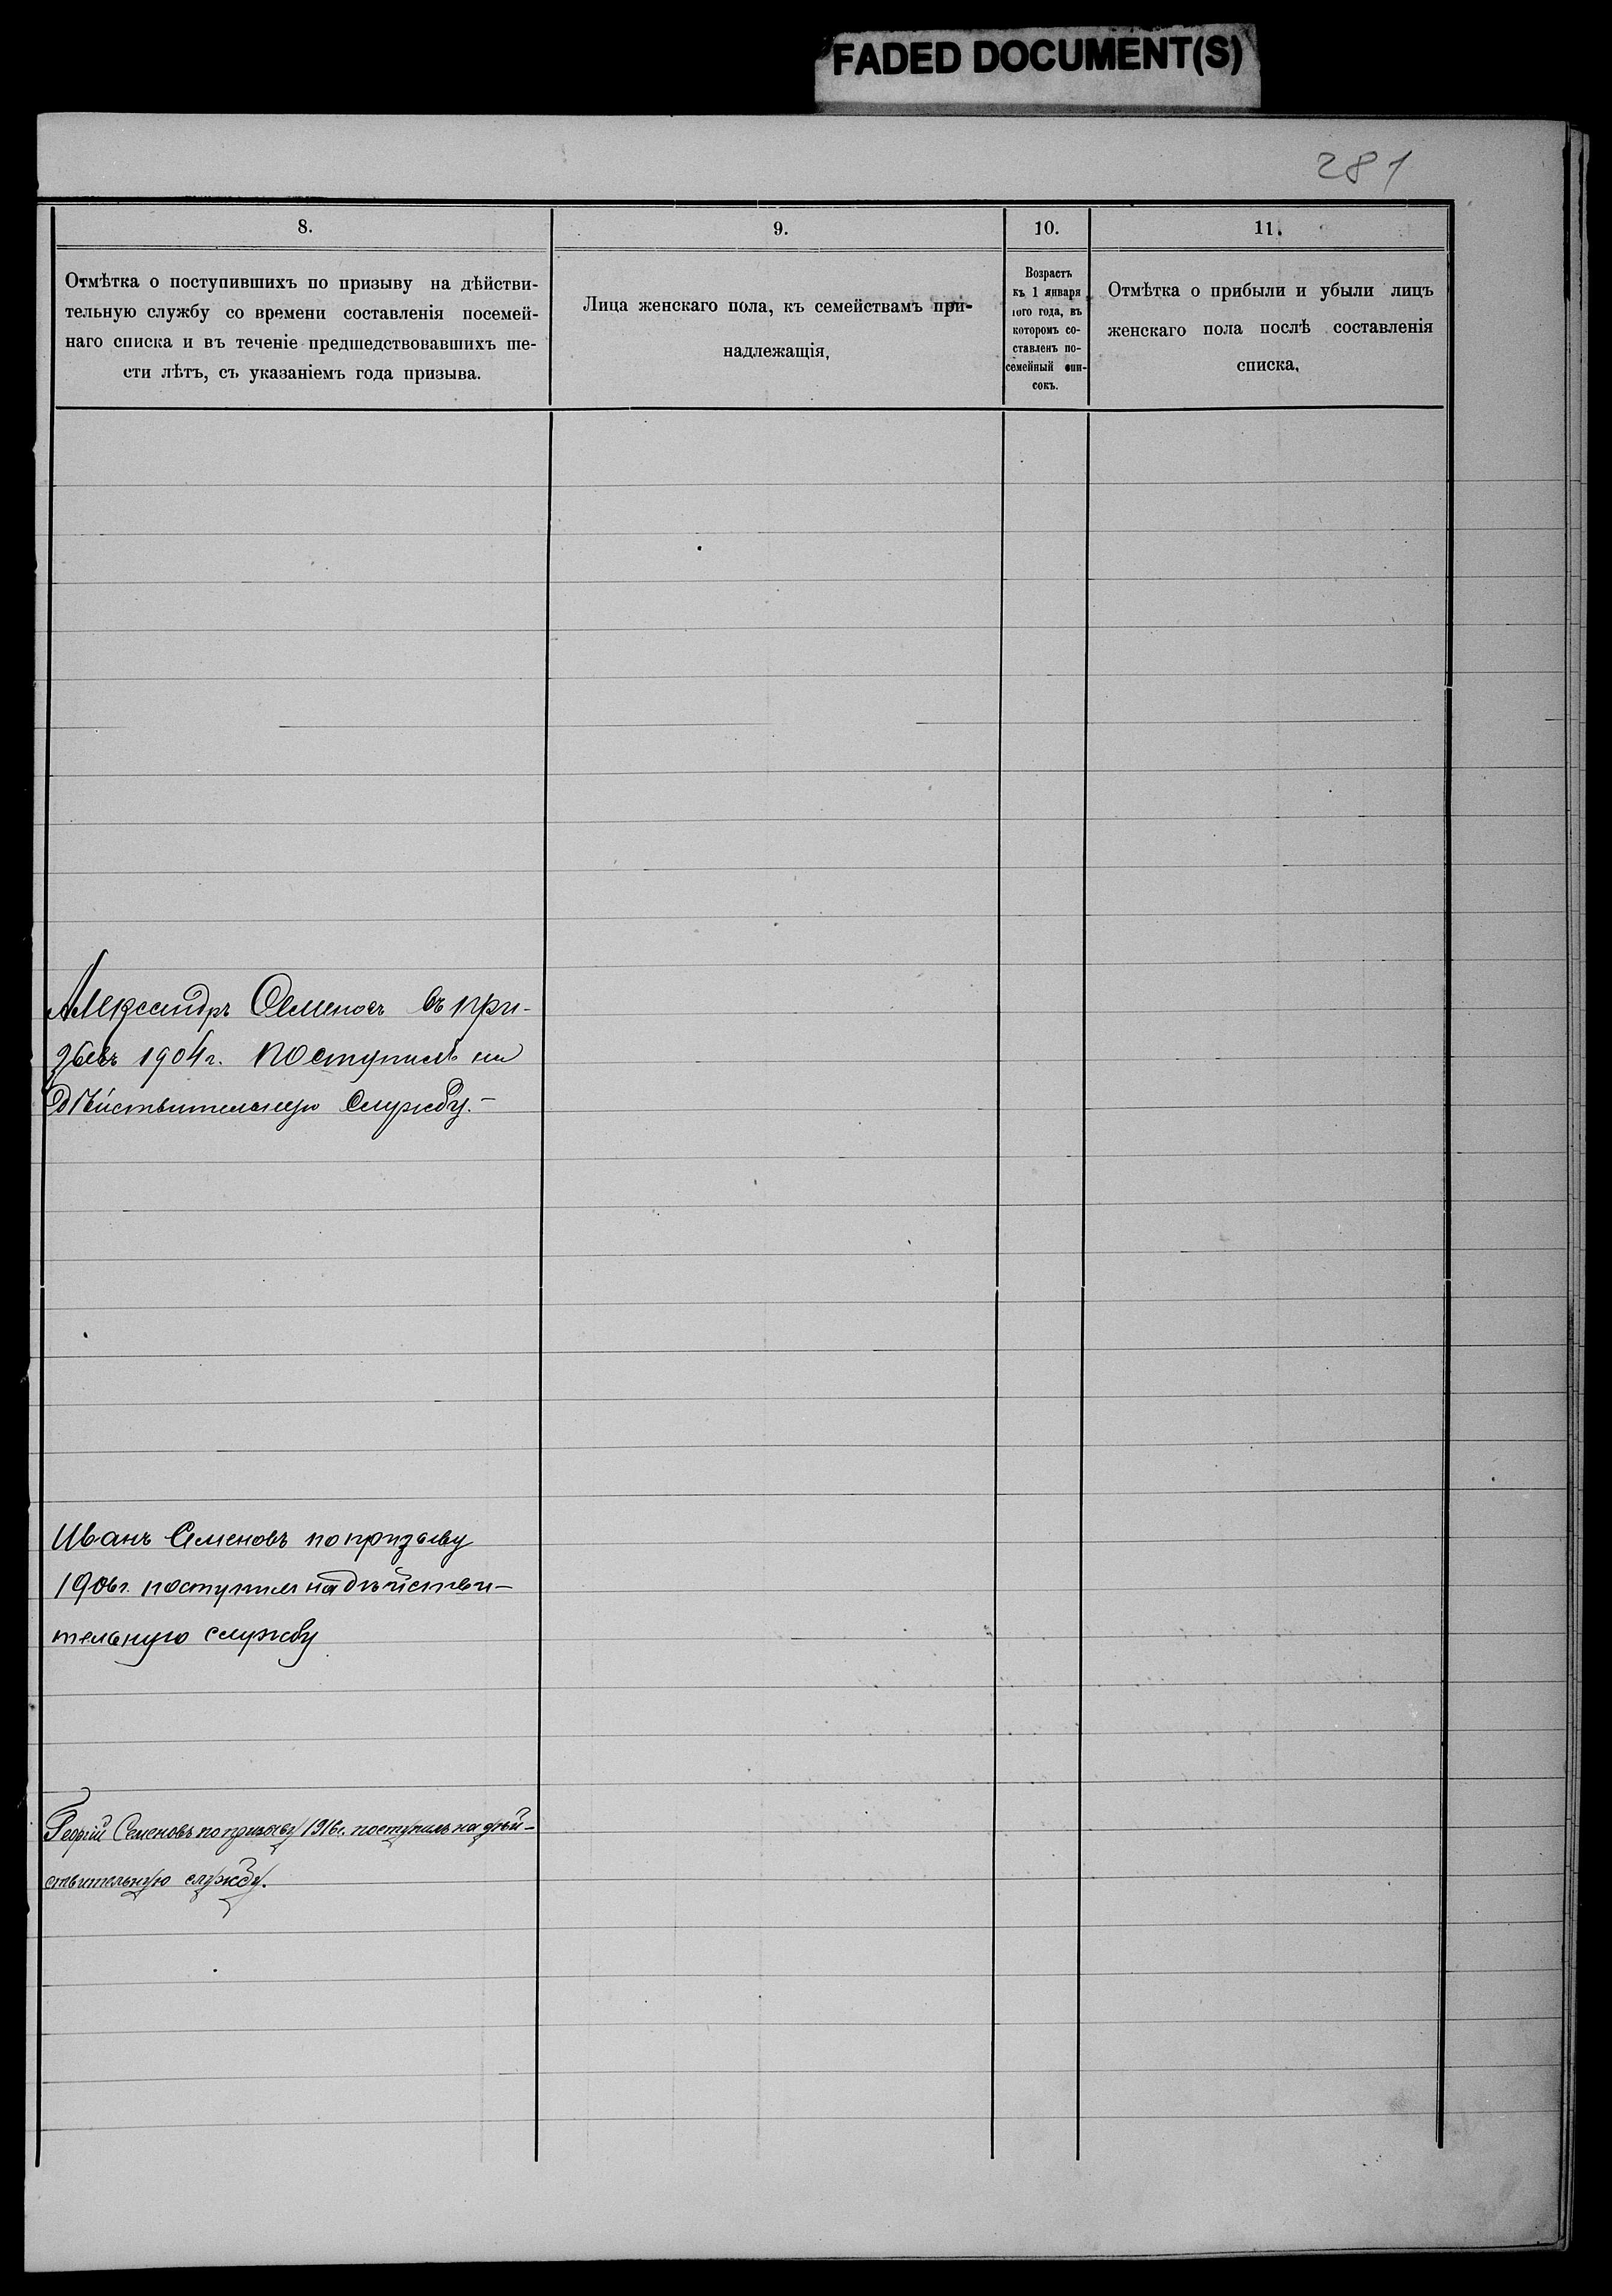 FADED DOCUMENT(S)
281
8.
9.
10.
11.
Отмѣтка о поступившихъ по призыву на дѣйстви-
тельную службу со времени составленія посемей-
наго списка и въ теченіе предшедствовавшихъ ше-
сти лѣтъ, съ указаніемъ года призыва.
Лица женскаго пола, къ семействамъ при-
надлежащія,
Возрастъ
къ 1 января
того года, въ
которомъ со-
ставленъ по-
семейный спи-
сокъ.
Отмѣтка о прибыли и убыли лицъ
женскаго пола послѣ составленія
списка,
Александръ Семеновъ въ при-
зывъ 1904 г. поступилъ на
дѣйствительную службу.-
Иванъ Семеновъ по призыву
1906 г. поступилъ на дѣйстви-
тельную службу
Георгій Семеновъ по призыву 1916 г. поступилъ на дѣй-
ствительную службу.